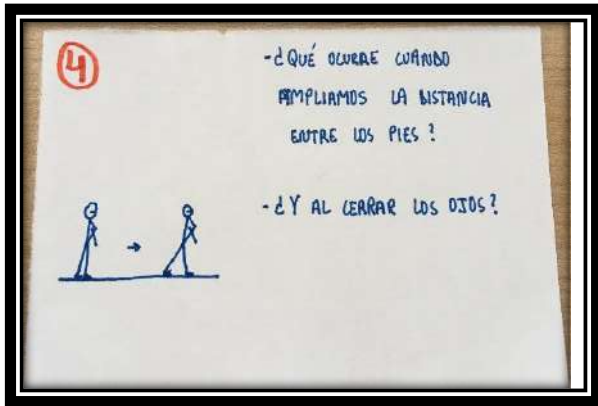 4
-¿QUÉ OCURRE CUANDO
AMPLIAMOS LA DISTANCIA
ENTRE LOS PIES?
-¿Y AL CERRAR LOS OJOS?